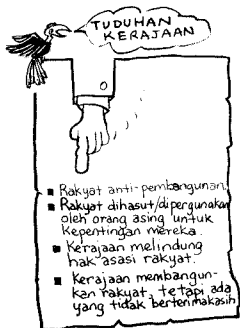 TUDUHAN
KERAJAAN
Rakyat anti-pembangunan.
Rakyat dihasut/dipergunakan
oleh orang asing untuk
kepentingan mereka.
Kerajaan melindung
hak asasi rakyat.
Kerajaan membangun-
kan rakyat, tetapi ada
yang tidak berterimakasih